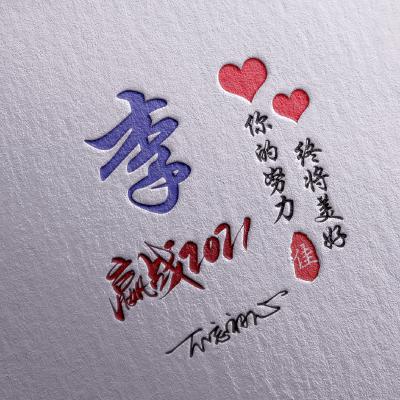 李
你的努力
终将美好
佳
赢战2021